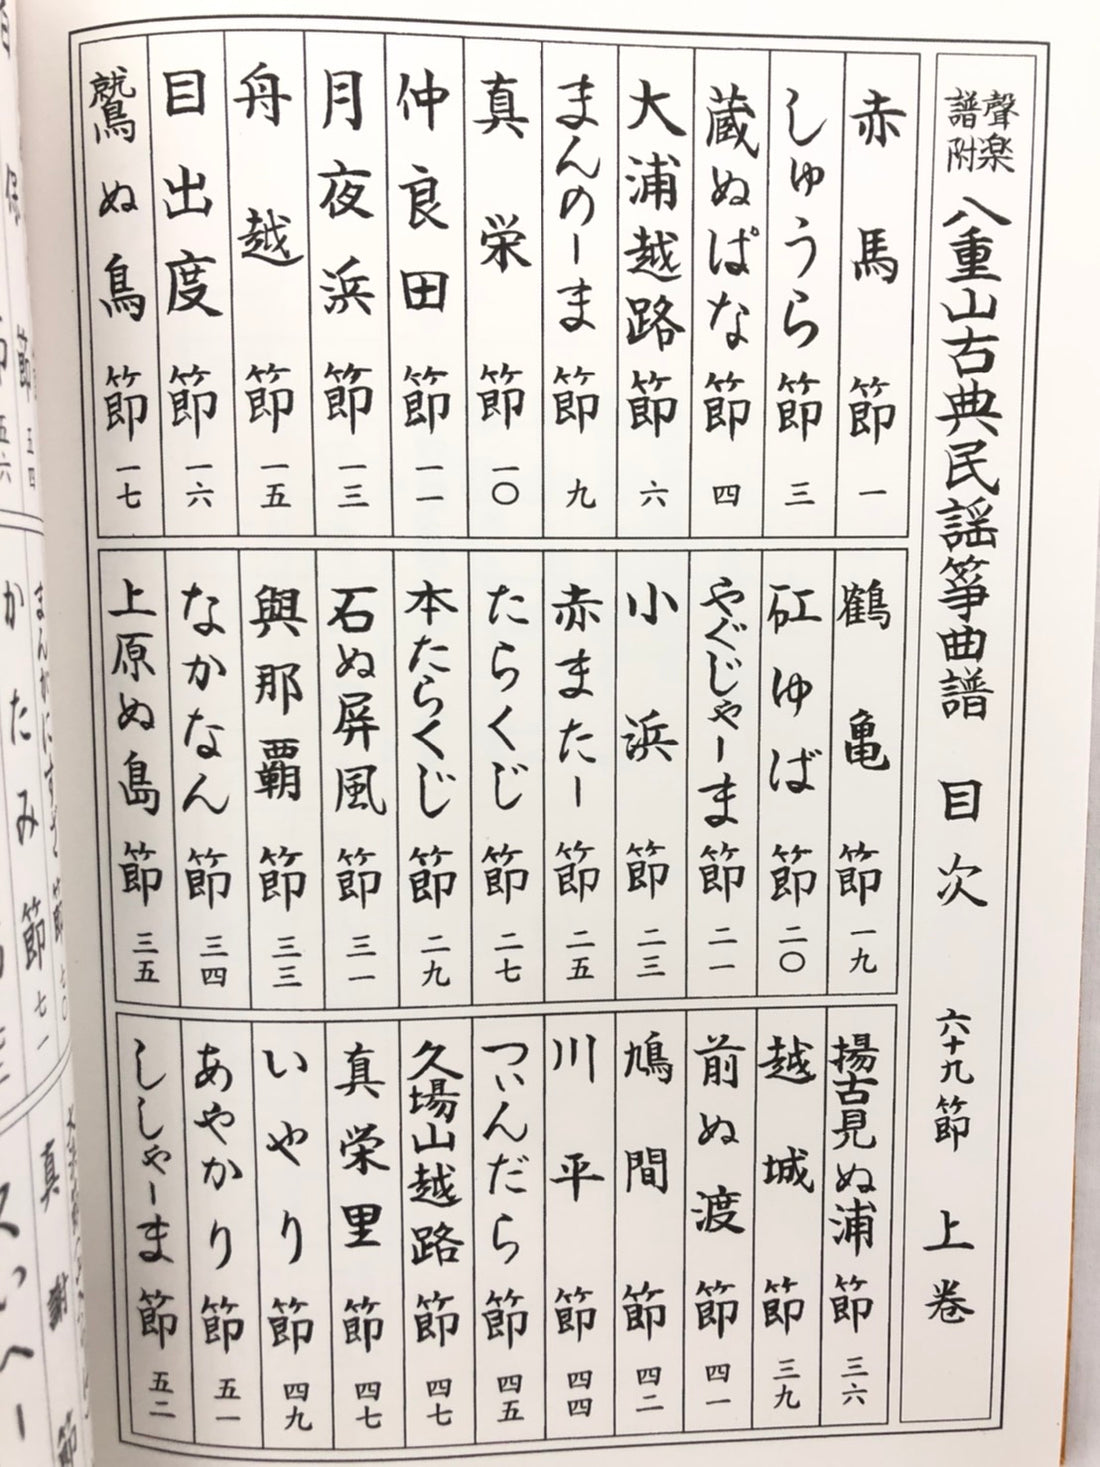 聲楽譜附 八重山古典民謡箏曲譜 目次 六十九節 上巻
赤馬節 一
しゅうら節 三
蔵ぬぱな節 四
大浦越路節 六
まんのーま節 九
真栄節 一〇
仲良田節 一一
月夜浜節 一三
舟越節 一五
目出度節 一六
鷲ぬ鳥節 一七
鶴亀節 一九
矼ゆば節 二〇
やぐじゃーま節 二一
小浜節 二三
赤またー節 二五
たらくじ節 二七
本たらくじ節 二九
石ぬ屏風節 三一
與那覇節 三三
なかなん節 三四
上原ぬ島節 三五
揚古見ぬ浦節 三六
越城節 三九
前ぬ渡節 四一
鳩間節 四二
川平節 四四
つぃんだら節 四五
久場山越路節 四七
真栄里節 四七
いやり節 四九
あやかり節 五一
ししゃーま節 五二